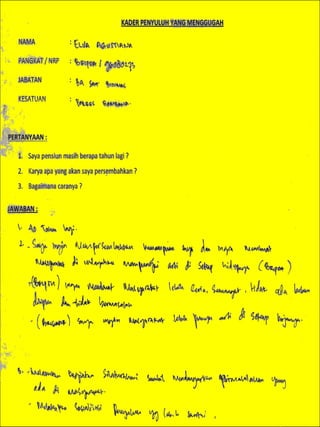 KADER PENYULUH YANG MENGGUGAH
NAMA : ELVA AGUSTIANA
PANGKAT / NRP : BRIPDA /
JABATAN : BA SAT BINMAS
KESATUAN : POLRES
PERTANYAAN :
1. Saya pensiun masih berapa tahun lagi ?
2. Karya apa yang akan saya persembahkan ?
3. Bagaimana caranya ?
JAWABAN :
1. 40 Tahun lagi.
2. - Saya ingin mempersembahkan kemampuan saya dan ingin membuat
Masyarakat di wilayahku mempunyai arti di setiap hidupnya
- ingin membuat Masyarakat lebih Ceria, Semangat, tidak ada beban
dan tidak bermasalah
- saya ingin Masyarakat lebih punya arti di setiap
3. - Melakukan kegiatan Silaturahmi sambil mendengarkan yang
ada di masyarakat.
- Melakukan Sosialisasi Penyuluhan yg